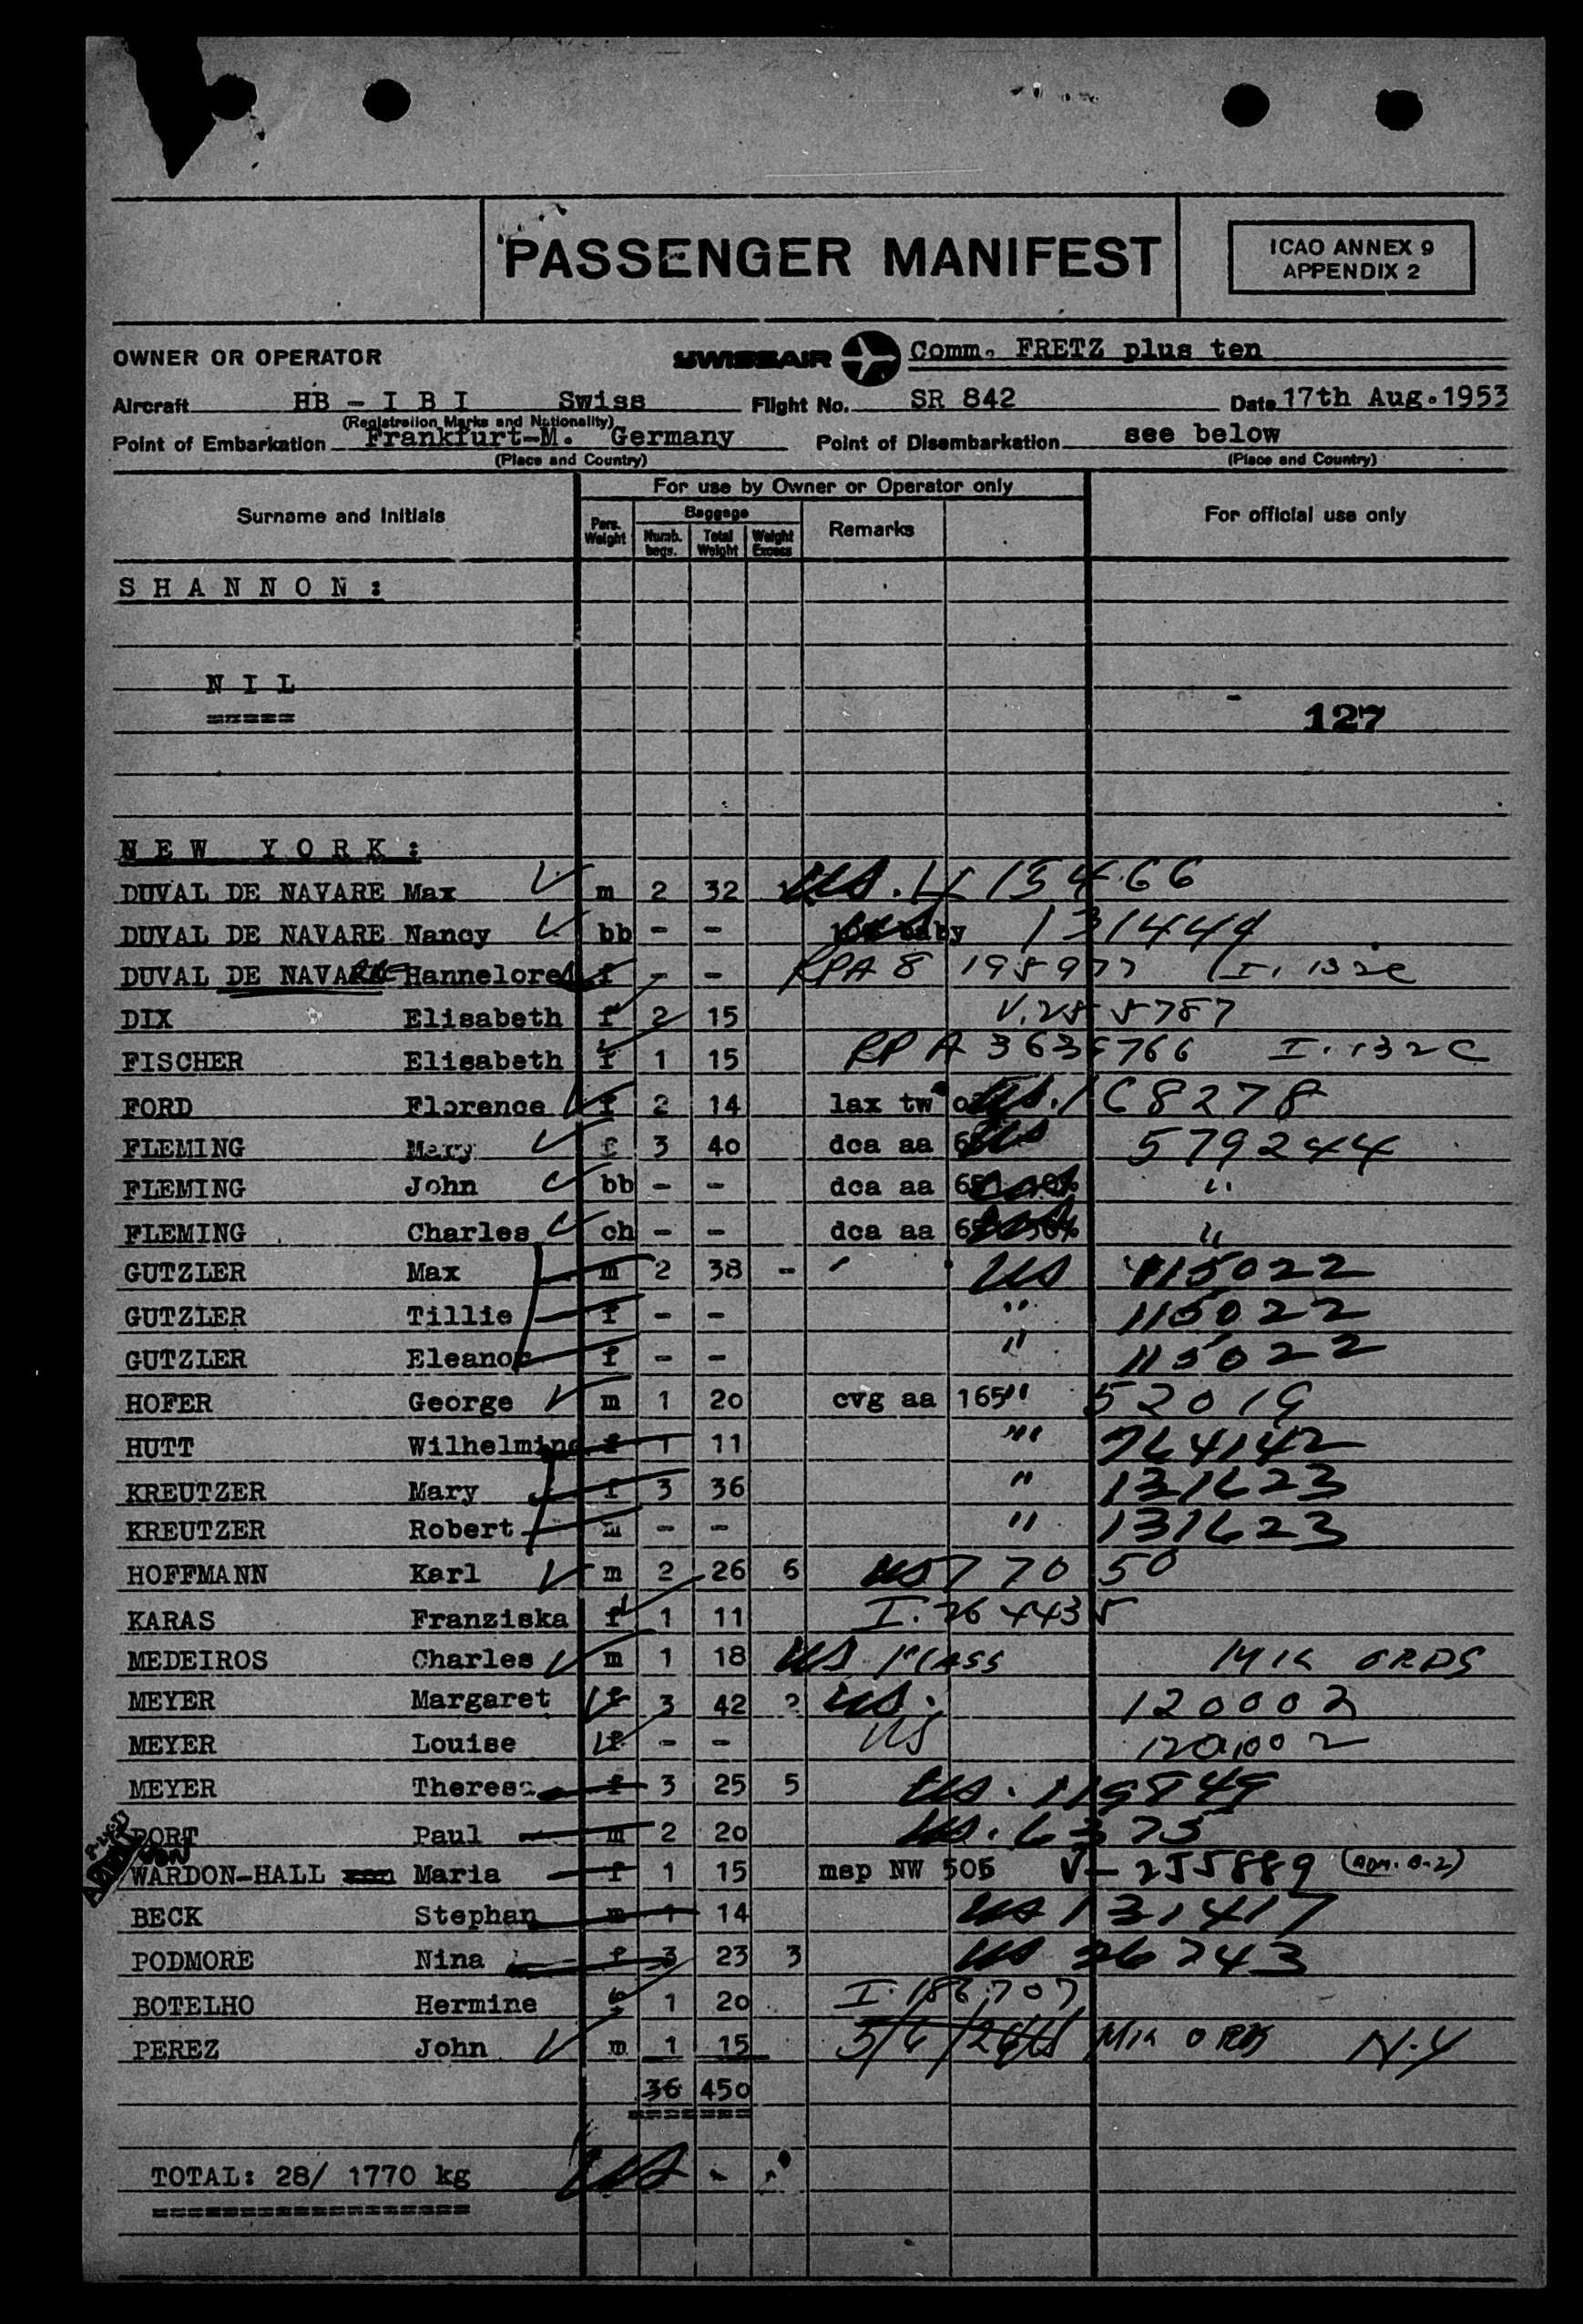 PASSENGER MANIFEST
ICAO ANNEX 9
APPENDIX 2
OWNER OR OPERATOR SWISSAIR Comm. FRETZ plus ten
Aircraft HB - I B I Swiss Flight No. SR 842 Date 17th Aug. 1953
(Registration Marks and Nationality)
Point of Embarkation Frankfurt-M. Germany Point of Disembarkation see below
(Place and Country) (Place and Country)
For use by Owner or Operator only
Surname and Initials Pers. Weight Baggage Remarks For official use only
Numb. bags. Total Weight Weight Excess
S H A N N O N :
N I L
=====
127
N E W Y O R K :
DUVAL DE NAVARE Max m 2 32 US. 15466
DUVAL DE NAVARE Nancy bb - - baby 131444
DUVAL DE NAVARRE Hannelore f - - RPA 8 195977 I. 132C
DIX Elisabeth f 2 15 V. 255787
FISCHER Elisabeth f 1 15 RP A 3636766 I. 132C
FORD Florence f 2 14 lax tw US. 168278
FLEMING Mary f 3 40 dca aa US 579244
FLEMING John bb - - dca aa "
FLEMING Charles ch - - dca aa "
GUTZLER Max m 2 38 - US 115022
GUTZLER Tillie f - - " 115022
GUTZLER Eleanor f - - " 115022
HOFER George m 1 20 cvg aa 165 " 52019
HUTT Wilhelmina f 1 11 " 764142
KREUTZER Mary f 3 36 " 131623
KREUTZER Robert m - - " 131623
HOFFMANN Karl m 2 26 6 US 77050
KARAS Franziska f 1 11 I. 264435
MEDEIROS Charles m 1 18 US MASS MIL ORDS
MEYER Margaret f 3 42 2 US. 120002
MEYER Louise f - - US 120002
MEYER Theresa f 3 25 5 US. 119849
PORT Paul m 2 20 US. 6375
VON WARDON-HALL von Maria f 1 15 msp NW 505 V- 255889 (Adm. B-2)
BECK Stephan m 1 14 US 131417
PODMORE Nina f 3 23 3 US 26743
BOTELHO Hermine f 1 20 I. 186707
PEREZ John m 1 15 3/6/26 US MIL ORD N.Y
36 450
=== ===
TOTAL: 28/ 1770 kg US
==================